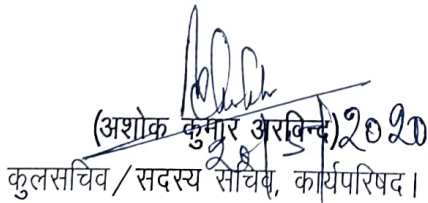 (अशोक कुमार अरविन्द) 2020
कुलसचिव / सदस्य सचिव, कार्यपरिषद।